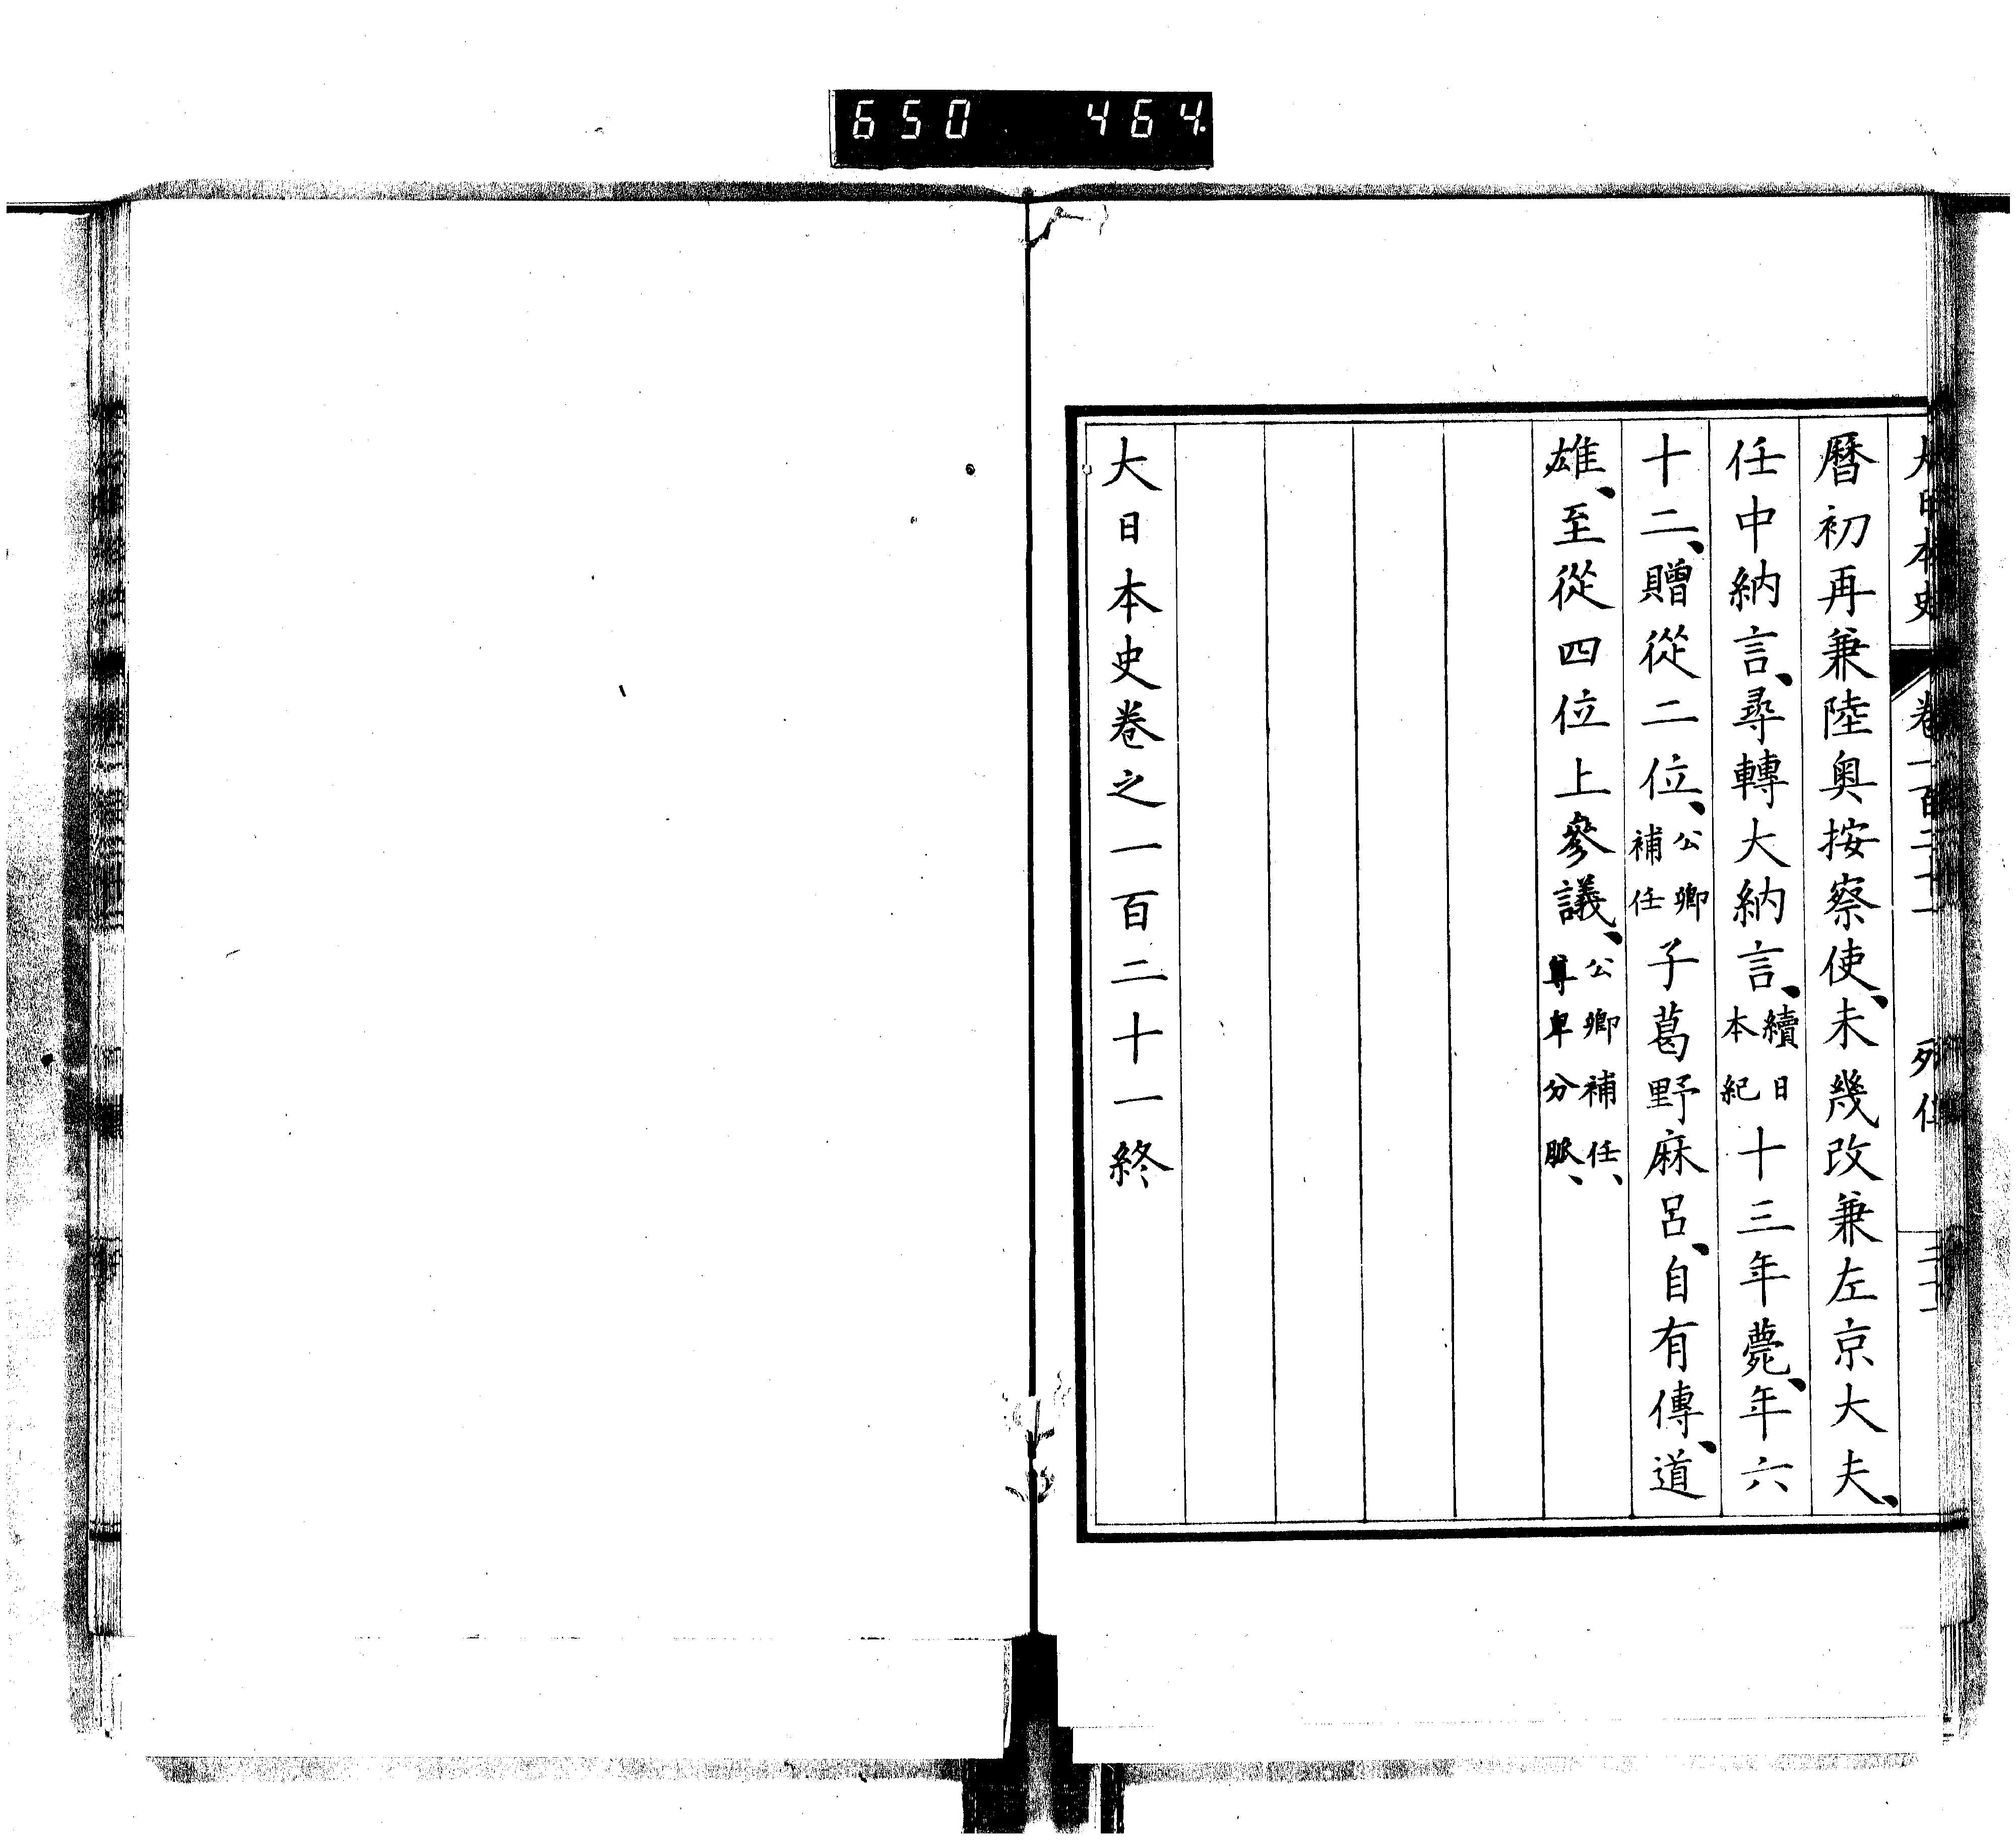 650 464.
大日本史 卷一百二十一 列傳
曆初再兼陸奧按察使、未幾改兼左京大夫、
任中納言、尋轉大納言、續日本紀十三年薨、年六
十二、贈從二位、公卿補任子葛野麻呂、自有傳、道
雄、至從四位上參議、公卿補任、尊卑分脈、
大日本史卷之一百二十一終